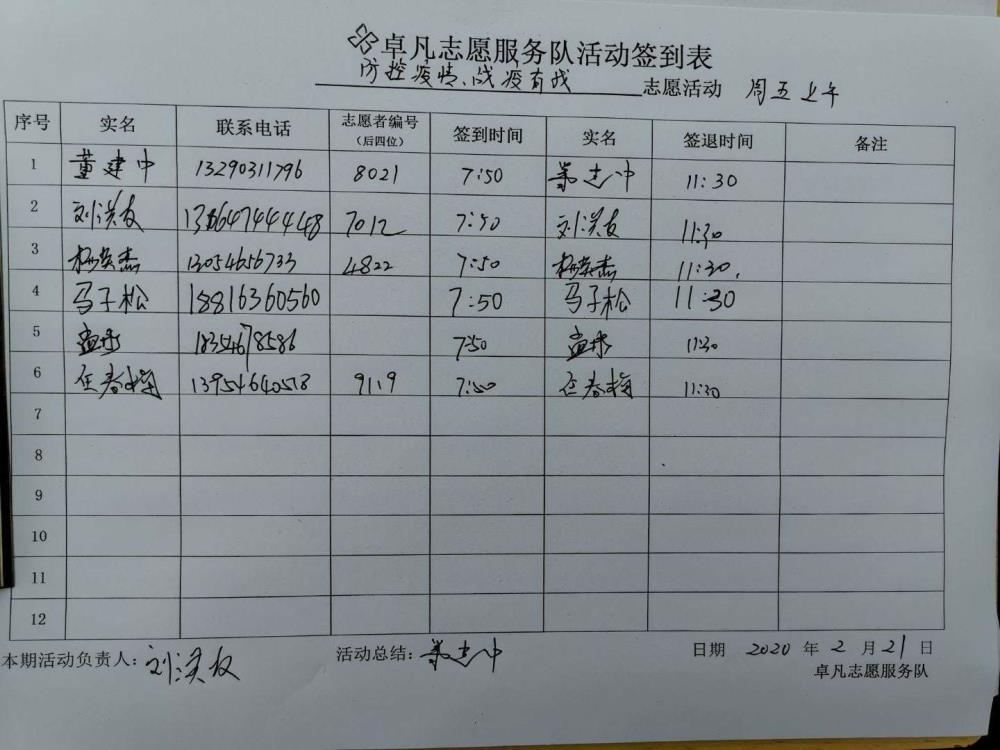 卓凡志愿服务队活动签到表
防控疫情、战疫有我 志愿活动 周五上午
序号 实名 联系电话 志愿者编号（后四位） 签到时间 实名 签退时间 备注
1 董建中 13290311796 8021 7:50 董建中 11:30
2 刘洪友 7012 7:50 刘洪友 11:30
3 杨英杰 13054656733 4822 7:50 杨英杰 11:30.
4 马子松 18816360560 7:50 马子松 11:30
5 18354678586 7:50 11:30
6 任春梅 13954640518 9119 7:50 任春梅 11:30
7
8
9
10
11
12
本期活动负责人：刘洪友 活动总结：董建中 日期 2020 年 2 月 21 日
卓凡志愿服务队